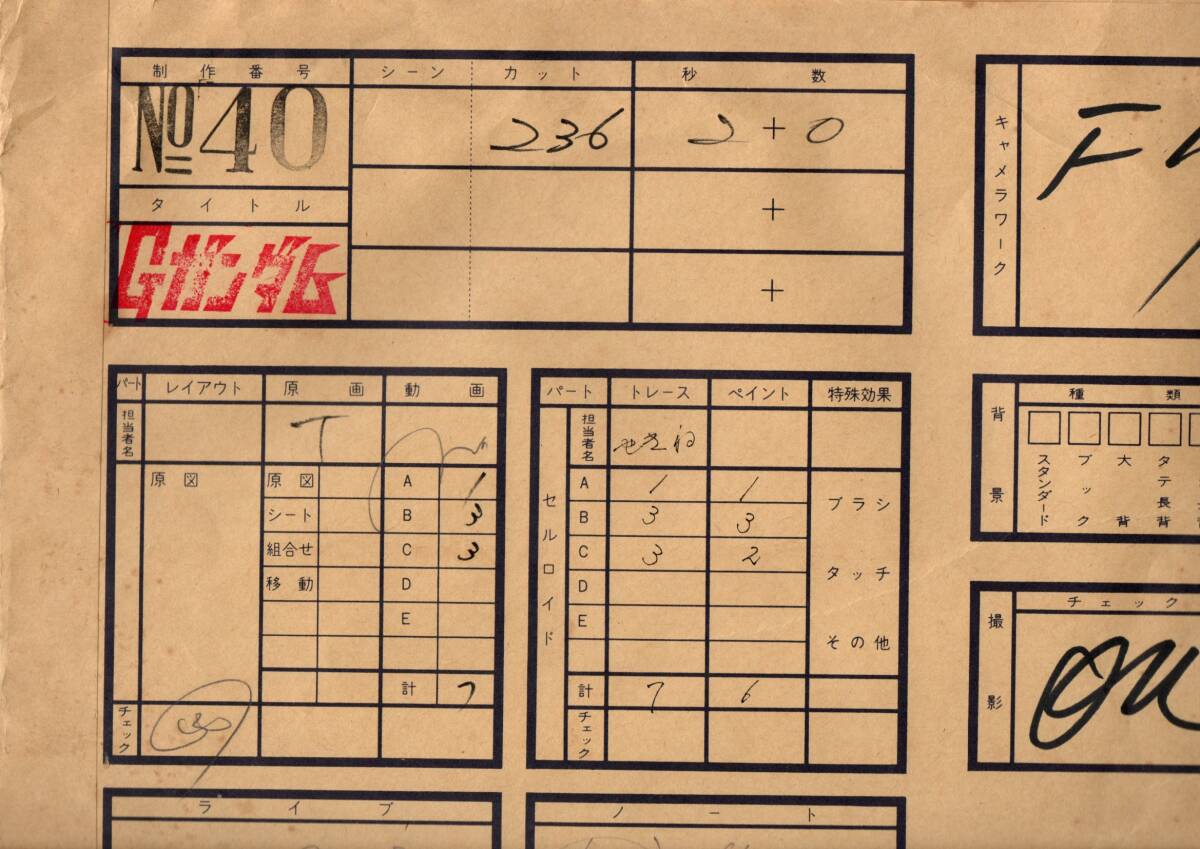 制作番号
No 40
タイトル
Gガンダム
シーン カット 秒数
236 2+0
+
+
キャメラワーク
F
パート レイアウト 原画 動画
担当者名
T
原図 原図 A 1
シート B 3
組合せ C 3
移動 D
E
計 7
チェック
パート トレース ペイント 特殊効果
担当者名
セルロイド
A 1 1
B 3 3
C 3 2
D
E
計 7 6
チェック
ブラシ
タッチ
その他
背景
種類
スタンダード
ブック
大背
タテ長背
撮影
チェック
ライブ
ノート